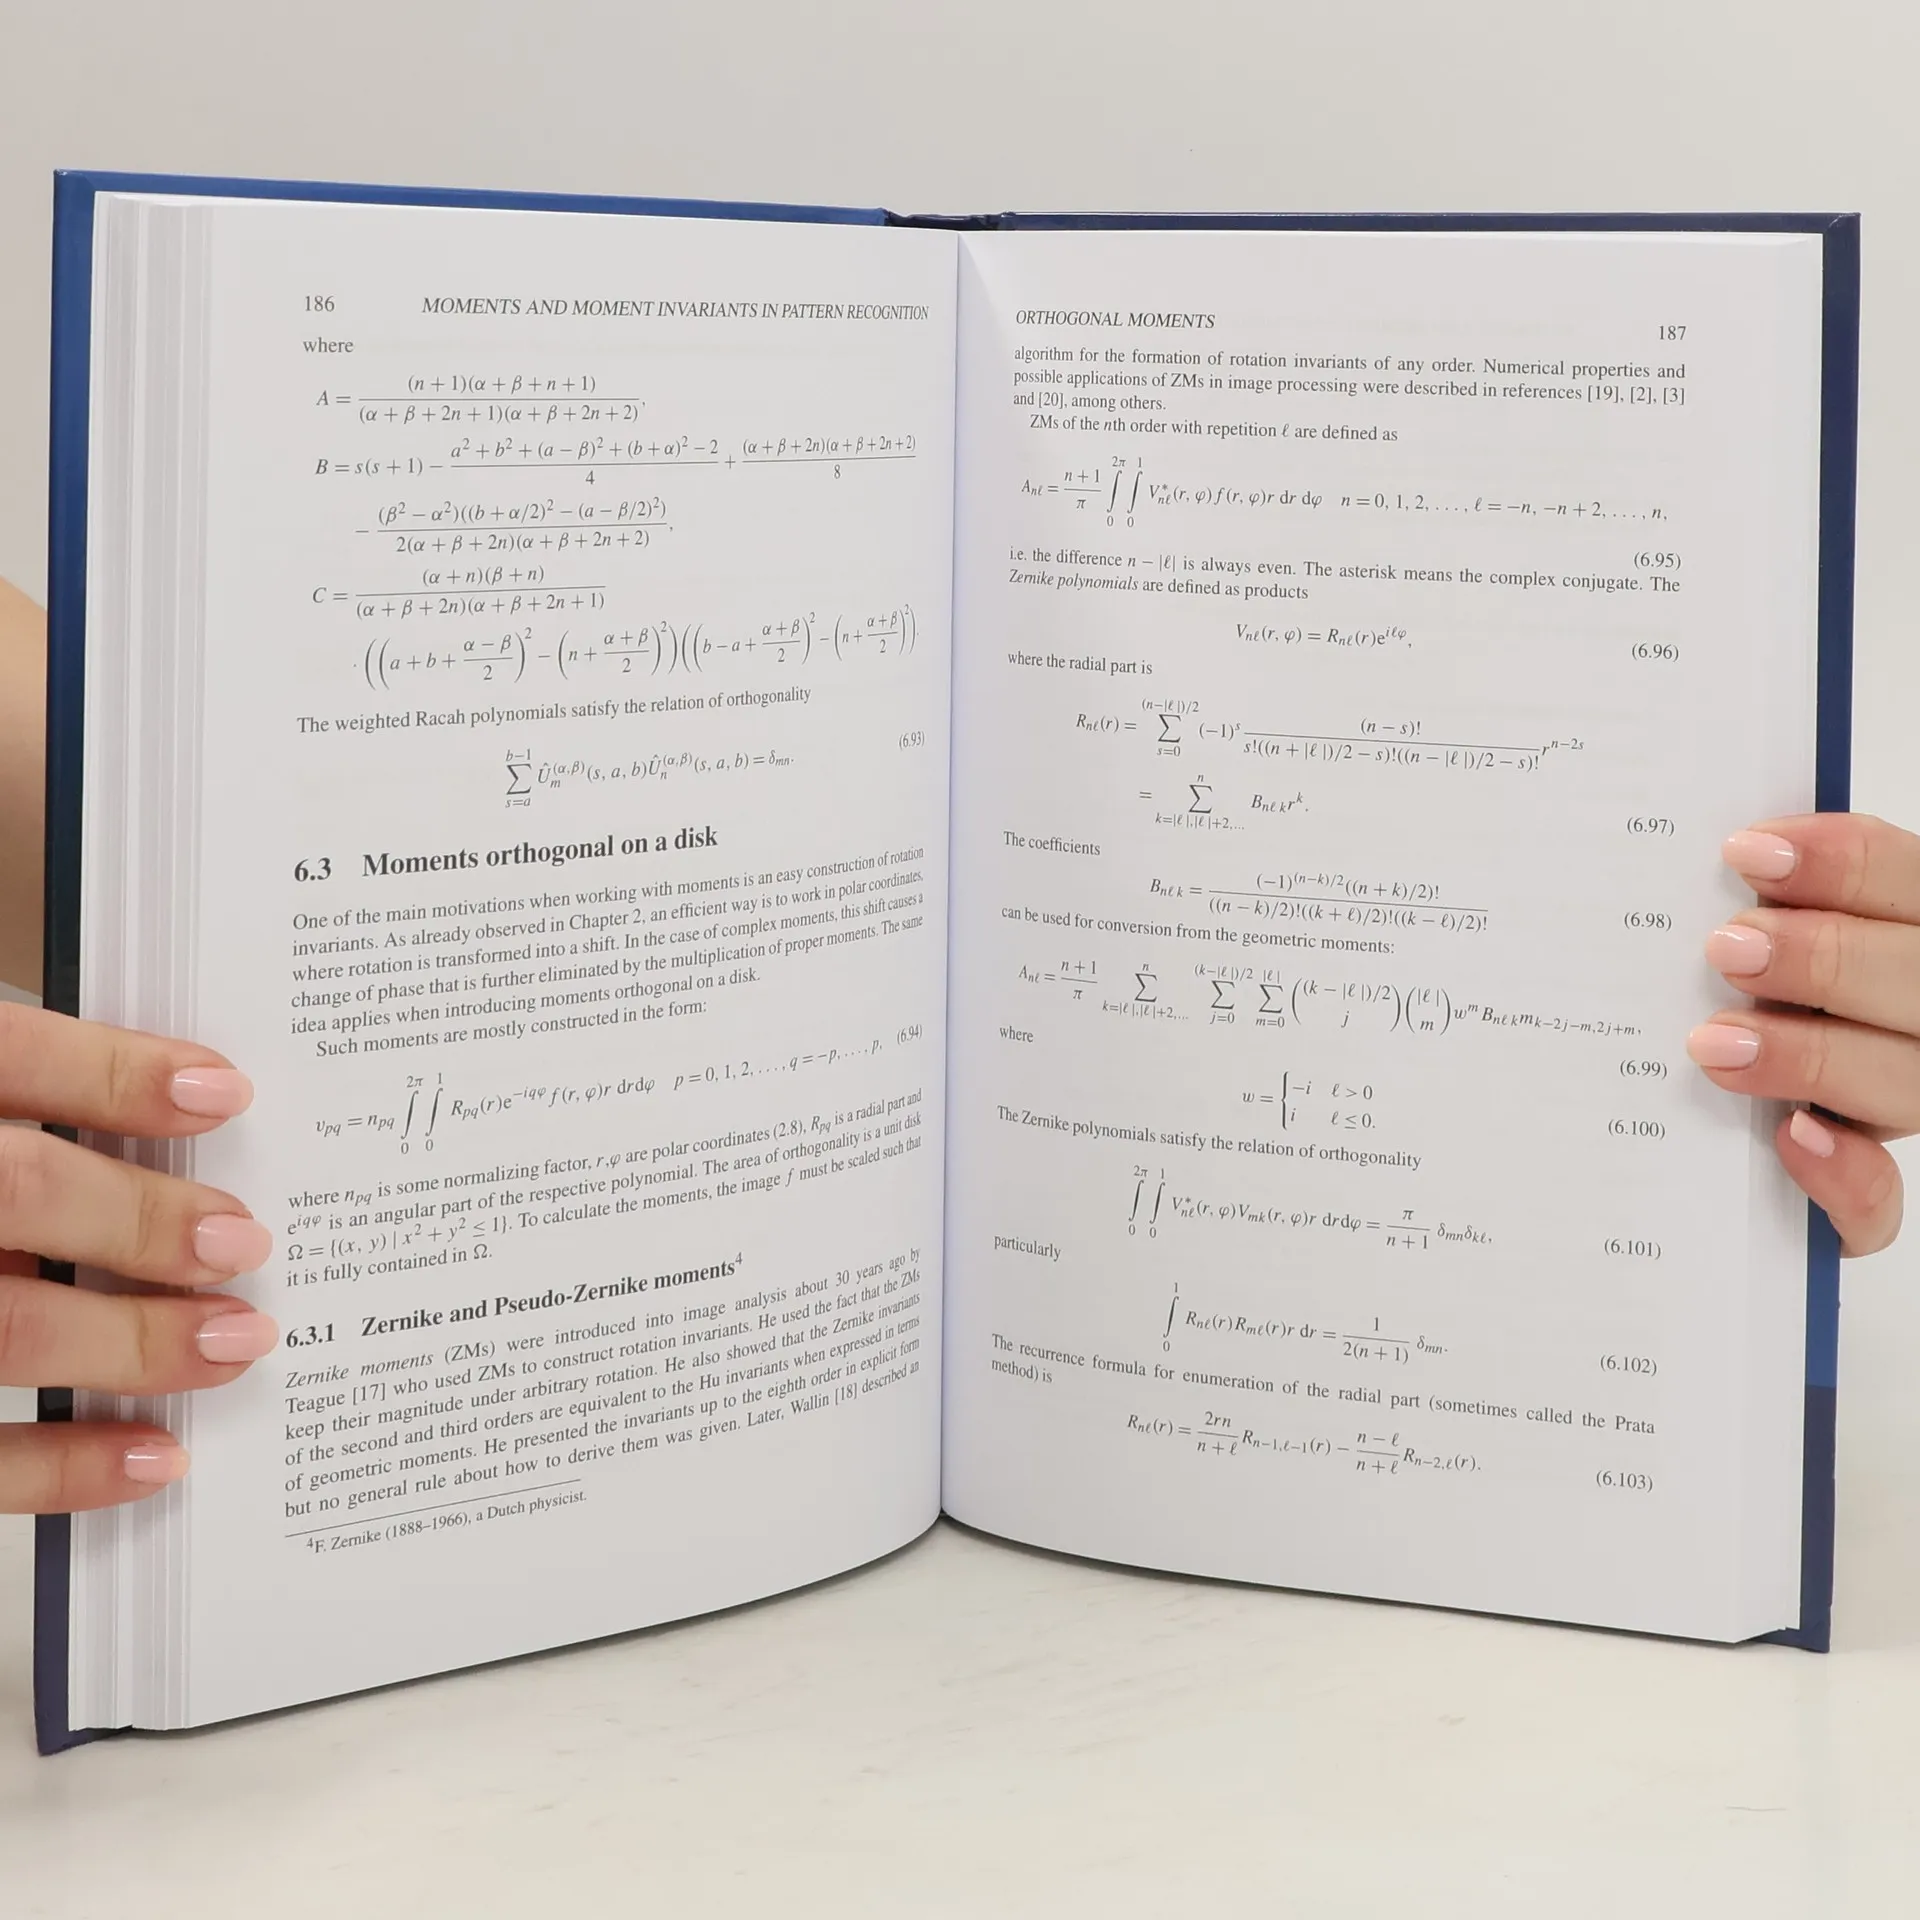 186 MOMENTS AND MOMENT INVARIANTS IN PATTERN RECOGNITION
where
A = (n + 1)(α + β + n + 1) / (α + β + 2n + 1)(α + β + 2n + 2),
B = s(s + 1) − a² + b² + (a − β)² + (b + α)² − 2 / 4 + (α + β + 2n)(α + β + 2n + 2) / 8
− (β² − α²)((b + α/2)² − (a − β/2)²) / 2(α + β + 2n)(α + β + 2n + 2),
C = (α + n)(β + n) / (α + β + 2n)(α + β + 2n + 1)
· ((a + b + (α − β)/2)² − (n + (α + β)/2)²)((b − a + (α + β)/2)² − (n + (α + β)/2)²).
The weighted Racah polynomials satisfy the relation of orthogonality
∑_{s=a}^{b−1} Û_m^{(α,β)}(s, a, b)Û_n^{(α,β)}(s, a, b) = δ_{mn}. (6.93)
6.3 Moments orthogonal on a disk
One of the main motivations when working with moments is an easy construction of rotation
invariants. As already observed in Chapter 2, an efficient way is to work in polar coordinates,
where rotation is transformed into a shift. In the case of complex moments, this shift causes a
change of phase that is further eliminated by the multiplication of proper moments. The same
idea applies when introducing moments orthogonal on a disk.
Such moments are mostly constructed in the form:
v_{pq} = n_{pq} ∫_0^{2π} ∫_0^1 R_{pq}(r)e^{−iqφ} f(r, φ)r drdφ p = 0, 1, 2, . . . , q = −p, . . . , p, (6.94)
where n_{pq} is some normalizing factor, r,φ are polar coordinates (2.8), R_{pq} is a radial part and
e^{iqφ} is an angular part of the respective polynomial. The area of orthogonality is a unit disk
Ω = {(x, y) | x² + y² ≤ 1}. To calculate the moments, the image f must be scaled such that
it is fully contained in Ω.
6.3.1 Zernike and Pseudo-Zernike moments⁴
Zernike moments (ZMs) were introduced into image analysis about 30 years ago by
Teague [17] who used ZMs to construct rotation invariants. He used the fact that the ZMs
keep their magnitude under arbitrary rotation. He also showed that the Zernike invariants
of the second and third orders are equivalent to the Hu invariants when expressed in terms
of geometric moments. He presented the invariants up to the eighth order in explicit form
but no general rule about how to derive them was given. Later, Wallin [18] described an
⁴F. Zernike (1888–1966), a Dutch physicist.
ORTHOGONAL MOMENTS 187
algorithm for the formation of rotation invariants of any order. Numerical properties and
possible applications of ZMs in image processing were described in references [19], [2], [3]
and [20], among others.
ZMs of the nth order with repetition ℓ are defined as
A_{nℓ} = (n + 1)/π ∫_0^{2π} ∫_0^1 V*_{nℓ}(r, φ) f(r, φ)r dr dφ n = 0, 1, 2, . . . , ℓ = −n, −n + 2, . . . , n,
(6.95)
i.e. the difference n − |ℓ| is always even. The asterisk means the complex conjugate. The
Zernike polynomials are defined as products
V_{nℓ}(r, φ) = R_{nℓ}(r)e^{iℓφ}, (6.96)
where the radial part is
R_{nℓ}(r) = ∑_{s=0}^{(n−|ℓ|)/2} (−1)^s (n − s)! / s!((n + |ℓ|)/2 − s)!((n − |ℓ|)/2 − s)! r^{n−2s}
= ∑_{k=|ℓ|,|ℓ|+2,...}^{n} B_{nℓk}r^k. (6.97)
The coefficients
B_{nℓk} = (−1)^{(n−k)/2}((n + k)/2)! / ((n − k)/2)!((k + ℓ)/2)!((k − ℓ)/2)! (6.98)
can be used for conversion from the geometric moments:
A_{nℓ} = (n + 1)/π ∑_{k=|ℓ|,|ℓ|+2,...}^{n} ∑_{j=0}^{(k−|ℓ|)/2} ∑_{m=0}^{|ℓ|} ((k − |ℓ|)/2 j)(|ℓ| m) w^m B_{nℓk}m_{k−2j−m,2j+m},
(6.99)
where
w = { −i ℓ > 0
i ℓ ≤ 0. (6.100)
The Zernike polynomials satisfy the relation of orthogonality
∫_0^{2π} ∫_0^1 V*_{nℓ}(r, φ)V_{mk}(r, φ)r drdφ = π/(n + 1) δ_{mn}δ_{kℓ}, (6.101)
particularly
∫_0^1 R_{nℓ}(r)R_{mℓ}(r)r dr = 1/(2(n + 1)) δ_{mn}. (6.102)
The recurrence formula for enumeration of the radial part (sometimes called the Prata
method) is
R_{nℓ}(r) = 2rn/(n + ℓ) R_{n−1,ℓ−1}(r) − (n − ℓ)/(n + ℓ) R_{n−2,ℓ}(r). (6.103)